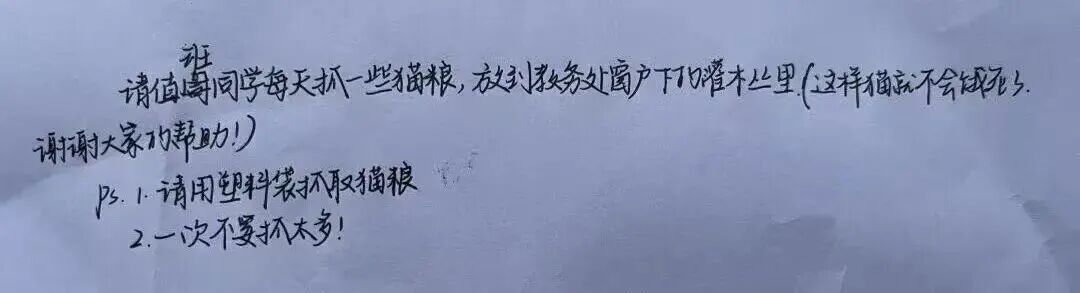 请值班同学每天抓一些猫粮,放到教务处窗户下的灌木丛里.(这样猫就不会饿死了.
谢谢大家的帮助!)
ps. 1. 请用塑料袋抓取猫粮
2. 一次不要抓太多!